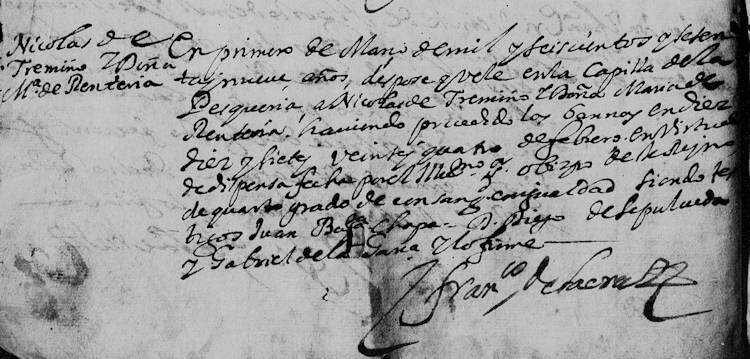 Nicolas de
Tremiño y Doña
Mª de Renteria
En primero de Março de mil y seiscientos y seten
ta y nueve años, despose y vele en la Capilla de la
Pesqueria, a Nicolas de Tremiño y Doña Maria de
Renteria, haviendo procedido los bannos en diez
diez y siete y veinte y quatro de febrero. en Virtud
de dispensa fecha por el Illmo Sr. obispo de este Reyno
de quarto grado de consanguinidad siendo tes
tigos Juan Bapta Chapa. D. Diego de Sepulveda
y Gabriel de la Garsa y lo firme
Franco de la